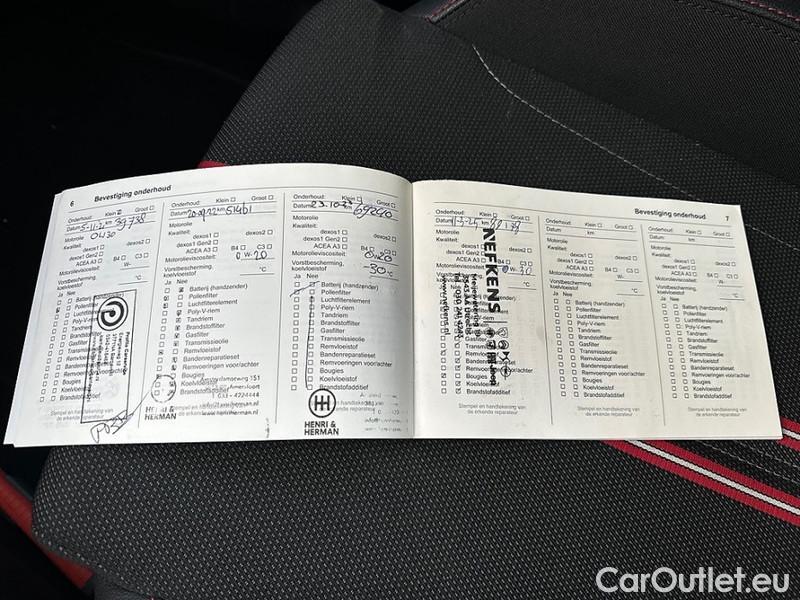 6 Bevestiging onderhoud
Onderhoud: Klein Groot
Datum 5-11-21 km 39738
Motorolie 0W30
Kwaliteit:
dexos1 dexos2
dexos1 Gen2
ACEA A3 B4 C3
Motorolieviscositeit: W-
Vorstbescherming, °C
koelvloeistof
Ja Nee
Batterij (handzender)
Pollenfilter
Luchtfilterelement
Poly-V-riem
Tandriem
Brandstoffilter
Gasfilter
Transmissieolie
Remvloeistof
Bandenreparatieset
Remvoeringen
Bougies
Koelvloeistof
Brandstofadditief
Stempel en handtekening van
de erkende reparateur
Onderhoud: Klein Groot
Datum km 51461
Motorolie
Kwaliteit:
dexos1 dexos2
dexos1 Gen2
ACEA A3 B4 C3
Motorolieviscositeit: 0 W-20
Vorstbescherming, °C
koelvloeistof
Ja Nee
Batterij (handzender)
Pollenfilter
Luchtfilterelement
Poly-V-riem
Tandriem
Brandstoffilter
Gasfilter
Transmissieolie
Remvloeistof
Bandenreparatieset
Remvoeringen voor/achter
151
033 - 4224444
HENRI &
HERMAN
Onderhoud: Klein Groot
Datum km 69240
Motorolie
Kwaliteit:
dexos1 dexos2
dexos1 Gen2
ACEA A3 B4 C3
Motorolieviscositeit: 0W20
Vorstbescherming,
koelvloeistof -30 °C
Ja Nee
Batterij (handzender)
Pollenfilter
Luchtfilterelement
Poly-V-riem
Tandriem
Brandstoffilter
Gasfilter
Transmissieolie
Remvloeistof
Bandenreparatieset
Remvoeringen voor/achter
Bougies
Koelvloeistof
Brandstofadditief
HENRI &
HERMAN
Bevestiging onderhoud 7
Onderhoud: Klein Groot
Datum km
Motorolie
Kwaliteit:
dexos2
B4 C3
W-30
°C
NEFKENS
Stempel en handtekening van
de erkende reparateur
Onderhoud: Klein Groot
Datum km
Motorolie
Kwaliteit:
dexos1 dexos2
dexos1 Gen2
ACEA A3 B4 C3
Motorolieviscositeit: W-
Vorstbescherming, °C
koelvloeistof
Ja Nee
Batterij (handzender)
Pollenfilter
Luchtfilterelement
Poly-V-riem
Tandriem
Brandstoffilter
Gasfilter
Transmissieolie
Remvloeistof
Bandenreparatieset
Remvoeringen voor/achter
Bougies
Koelvloeistof
Brandstofadditief
Stempel en handtekening van
de erkende reparateur
Onderhoud: Klein Groot
Datum km
Motorolie
Kwaliteit:
dexos1 dexos2
dexos1 Gen2
ACEA A3 B4 C3
Motorolieviscositeit: W-
Vorstbescherming, °C
koelvloeistof
Ja Nee
Batterij (handzender)
Pollenfilter
Luchtfilterelement
Poly-V-riem
Tandriem
Brandstoffilter
Gasfilter
Transmissieolie
Remvloeistof
Bandenreparatieset
Remvoeringen voor/achter
Bougies
Koelvloeistof
Brandstofadditief
Stempel en handtekening van
de erkende reparateur
CarOutlet.eu